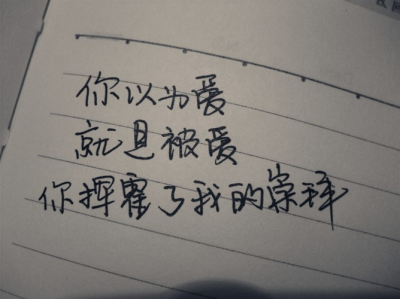 你以为爱
就是被爱
你挥霍了我的崇拜